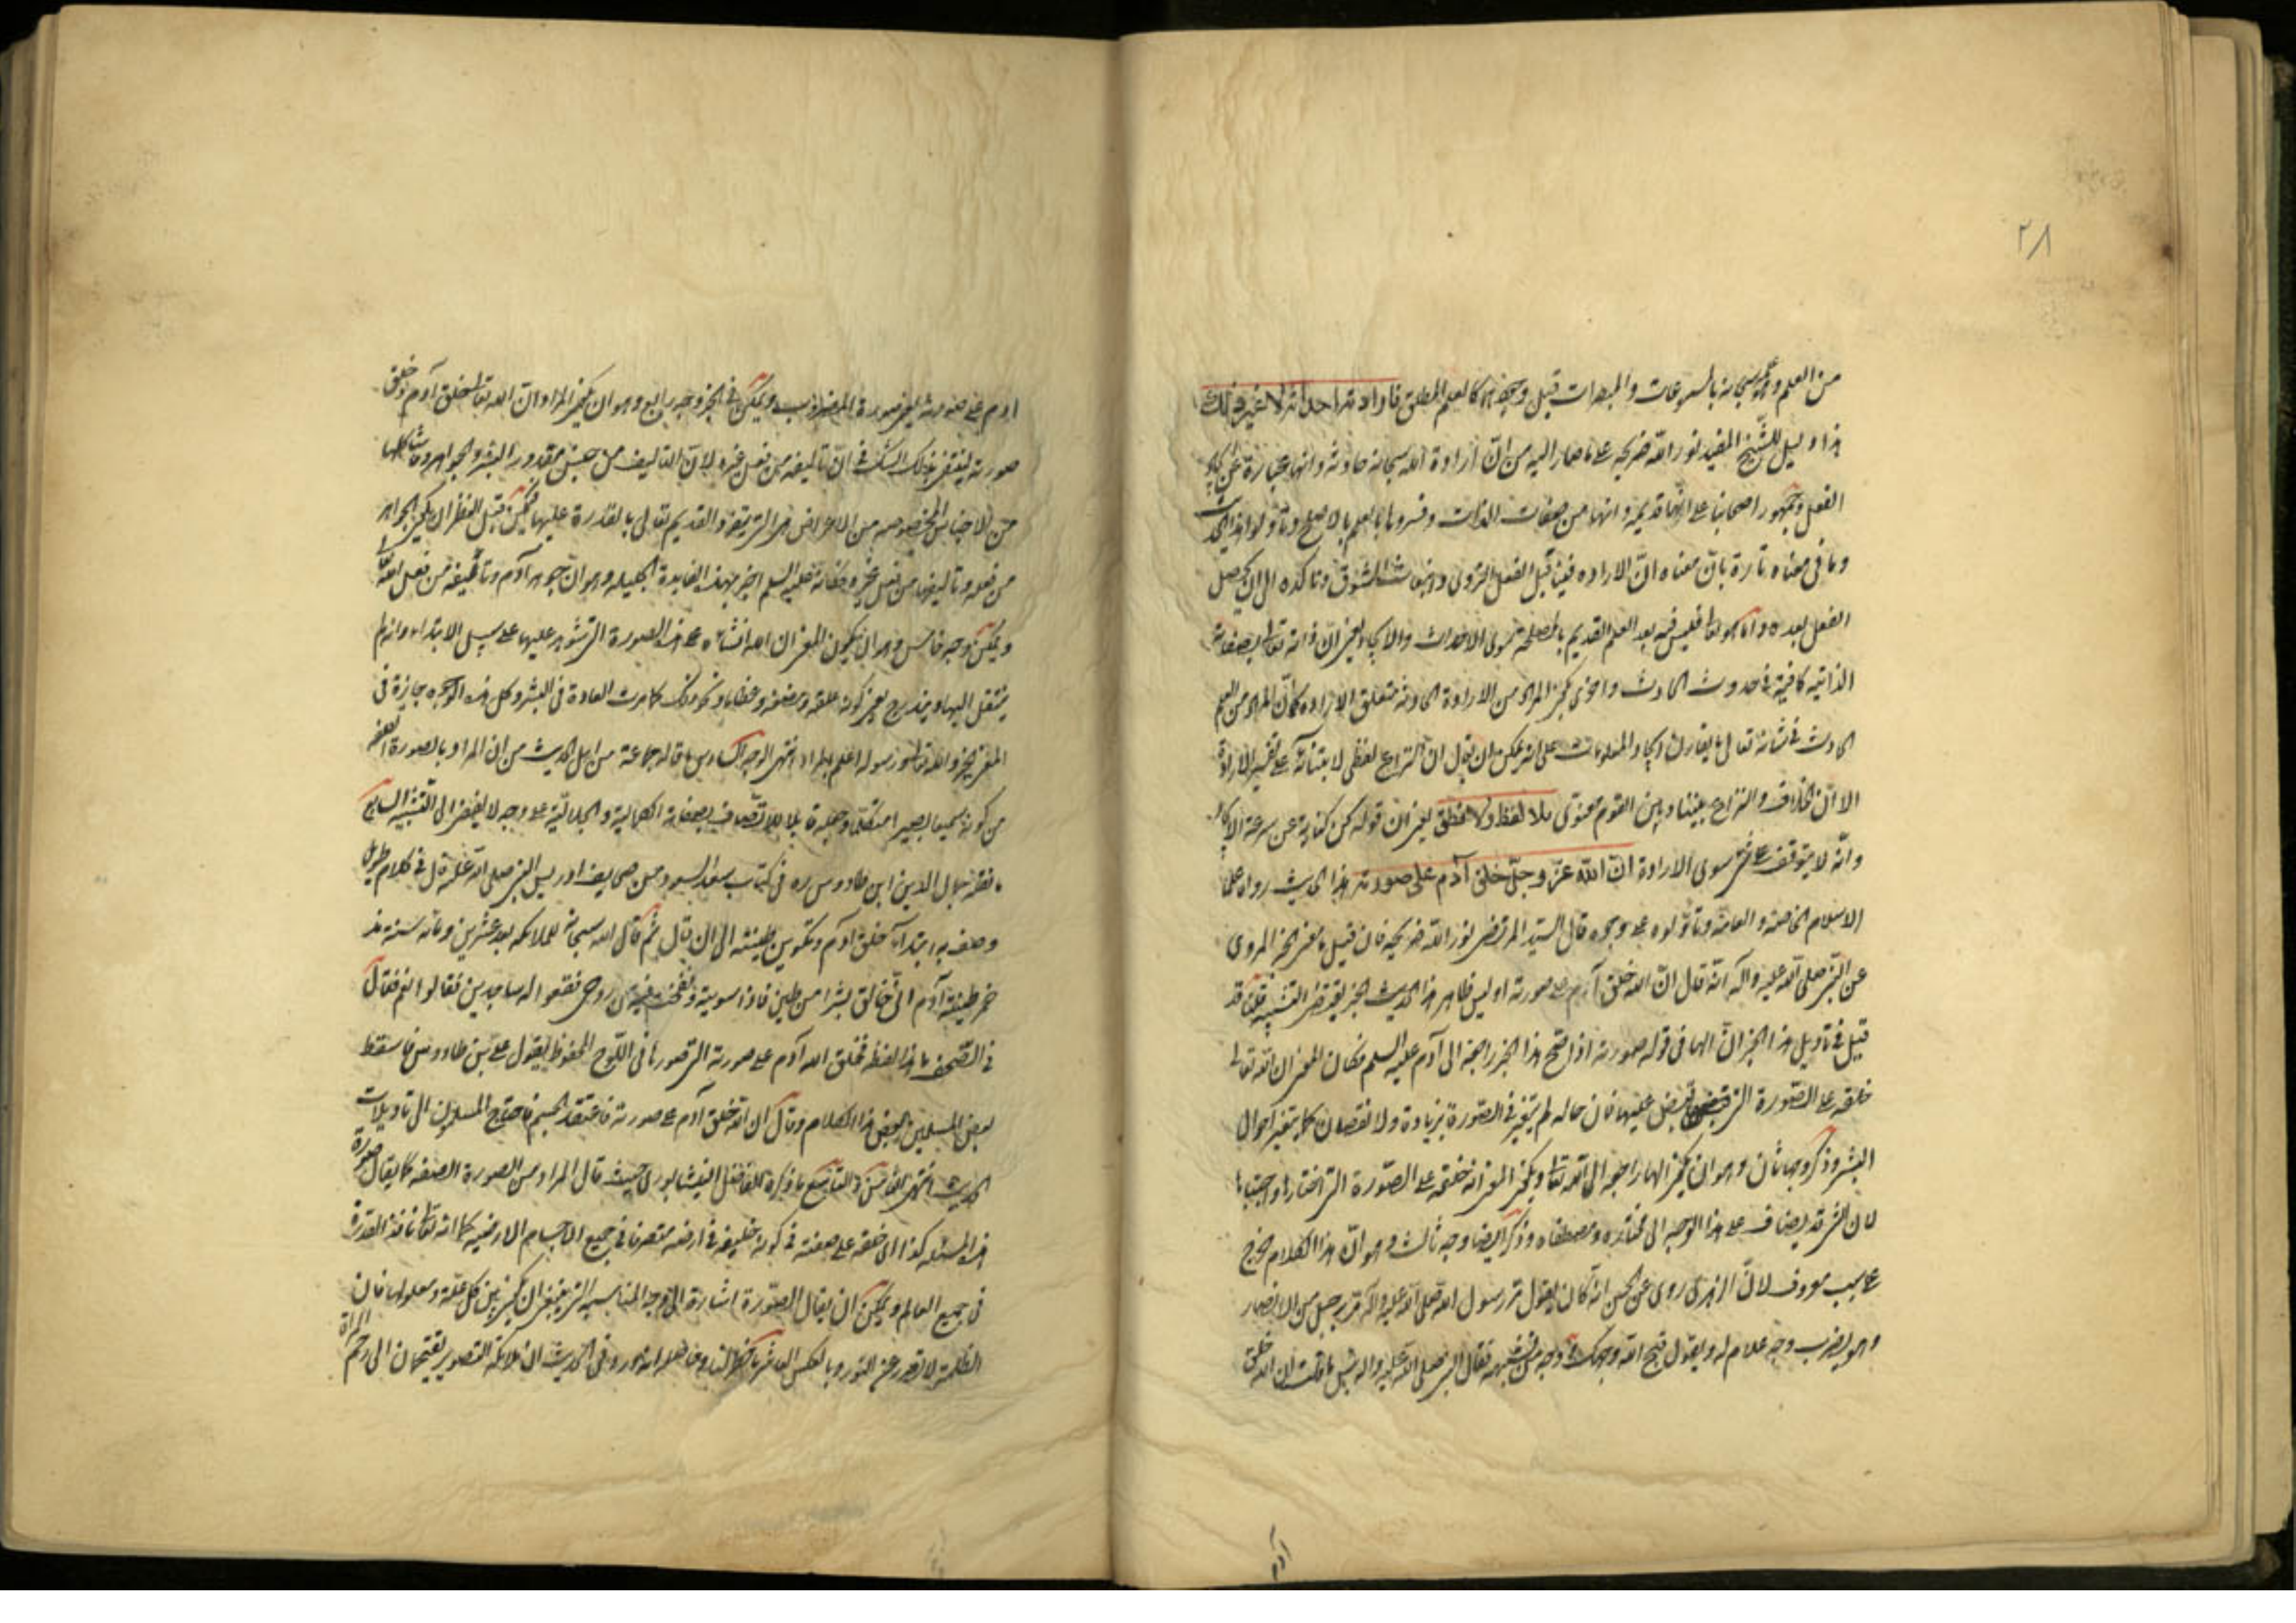 ٢٨
من العلم وعلمه سبحانه بالمسموعات والمبصرات قبل وجودها كالعلم المطلق فارادته احداثه لا غير ذلك
هذا دليل للشيخ المفيد نور الله ضريحه على ما صار اليه من انّ ارادة الله سبحانه حادثة وانها عبارة عن ايجاد
الفعل وجمهور اصحابنا على انّها قديمة وانها من صفات الذات وفسروها بالعلم بالاصلح وتأولوا هذا الحديث
وما في معناه تارة بانّ معناه انّ الارادة فينا قبل الفعل التروى وانبعاث الشوق وتاكده الى ان يحصل
الفعل بعده واما هو تعالى فليس فيه بعد العلم القديم بالمصلحة سوى الاحداث والايجاد يعنى انّ ذاته تعالى بصفاته
الذاتيه كافية في حدوث الحادث واخرى بكون المراد من الارادة الحادثة متعلق الارادة كما انّ المراد من العلم
الحادث في شانه تعالى ما يقارن ايجاد المعلومات على انه يمكن ان يقال انّ النزاع لفظى لابتنائه على تفسير الارادة
الا انّ الخلاف والنزاع بيننا وبين القوم معنوى بلا لفظ ولا نطق يعنى ان قوله كن كناية عن سرعة الايجاد
وانّه لا يتوقف على شئ سوى الارادة انّ الله عزّ وجلّ خلق آدم على صورته هذا الحديث رواه علماء
الاسلام الخاصة والعامة وتأوّلوه على وجوه قال السيّد المرتضى نور الله ضريحه فان قيل ما معنى الخبر المروى
عن النّبى صلى الله عليه وآله انّه قال انّ الله خلق آدم على صورته اوليس ظاهر هذا الحديث الخبر يقتضى التشبيه قلنا قد
قيل في تأويل هذا الخبر انّ الها في قوله صورته اذا صح هذا الخبر راجعة الى آدم عليه السلم فكان المعنى ان الله تعالى
خلقه على الصّورة التى قبض عليها فان حاله لم يتغير في الصّورة بزيادة ولا نقصان كما يتغير احوال
البشر وذكر وجها ثان وهو ان يكون الها راجعه الى الله تعالى ويكون المعنى انه خلقه على الصّورة التى اختارها واجتباها
لان الشئ قد يضاف على هذا الوجه الى مختاره ومصطفاه وذكر ايضا وجه ثالث وهو انّ هذا الكلام خرج
على سبب معروف لانّ الزهرى روى عن الحسن انّه كان يقول مرّ رسول الله صلى الله عليه وآله برجل من الانصار
وهو يضرب وجه غلام له ويقول قبح الله وجهك ووجه من تشبهه فقال النبى صلى الله عليه واله بئس ما قلت ان الله خلق
ادم
ادم على صورته يعنى صورة المضروب ويمكن في الخبر وجه رابع وهو ان يكون المراد ان الله تعالى خلق آدم وخلق
صورته لينتفى بذلك الشك في انّ تأليفه من فعل غيره لانّ التأليف من جنس مقدور البشر والجواهر وما شاكلها
من الاجناس المخصوصه من الاعراض هى التى يتفرد القديم تعالى بالقدرة عليها فيمكن قبل النظر ان يكون الجواهر
من فعله وتأليفها من فعل غيره فكأنه عليه السلم اخبر بهذه الفايدة الجليله وهو ان جوهر آدم وتأليفه من فعل الله تعالى
ويمكن وجه خامس وهو ان يكون المعنى ان الله انشأه على هذه الصورة التى شوهد عليها على سبيل الابتداء وانه لم
ينتقل اليها ويتدرج بمعنى كونه علقة ومضغه وعظاما ونحو ذلك كما جرت العادة في البشر وكل هذه الوجوه جايزة في
المعنى الخبر والله تعالى ورسوله اعلم بالمراد انتهى الوجه السادس ما قاله جماعة من اهل الحديث من ان المراد بالصورة الصفه
من كونه سميعا بصيرا متكلما وجعله قابلا للاتّصاف بصفاته الكمالية والجلاليّة على وجه لا يفضى الى التشبيه السابع
ما نقله جمال الدين ابن طاووس ره في كتاب سعد السعود من صحايف ادريس النبى صلى الله عليه قال في كلام طويل
وصف به ابتداء خلق آدم وتكوين طينته الى ان قال ثم قال الله سبحانه للملائكه بعد عشرين ومائة سنة مذ
خمر طينة آدم انّى خالق بشرا من طين فاذا سويته ونفخت فيه من روحى فقعوا له ساجدين فقالوا نعم فقال
في الصّحف ما هذا لفظه فخلق الله آدم على صورته التى صورها في اللّوح المحفوظ يقول على بن طاووس فاسقط
بعض المسلمين بعض هذا الكلام وقال ان الله خلق آدم على صورته فاعتقد الجسم فاحتاج المسلمون الى تاويلات
الحديث انتهى الثامن والتاسع ما ذكره الفاضل النيشابورى حيث قال المراد من الصورة الصفه كما يقال صورة
هذا المسئله كذا اى خلقه على صفته في كونه خليفة في ارضه متصرفا في جميع الاجسام الارضيه كما انه تعالى نافذ القدرة
في جميع العالم ويمكن ان يقال الصّورة اشارة الى وجه المناسبه التى ينبغى ان يكون بين كل علّة ومعلولها فان
الظلمة لا تصدر عن النور وبالعكس العاشر ما خطر بالبال وفاقا لما ورد في الحديث ان ملائكة التصوير يقتحمان الى رحم المراة